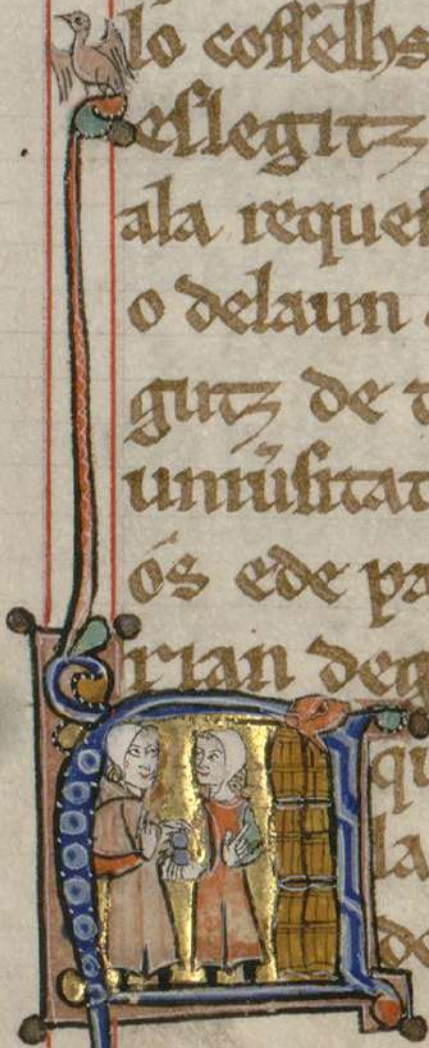 lo cosselhs
eslegitz
ala requei
o delaun
gutz de t
uniũsitat
os ede pa
rian deg
qu
la
de